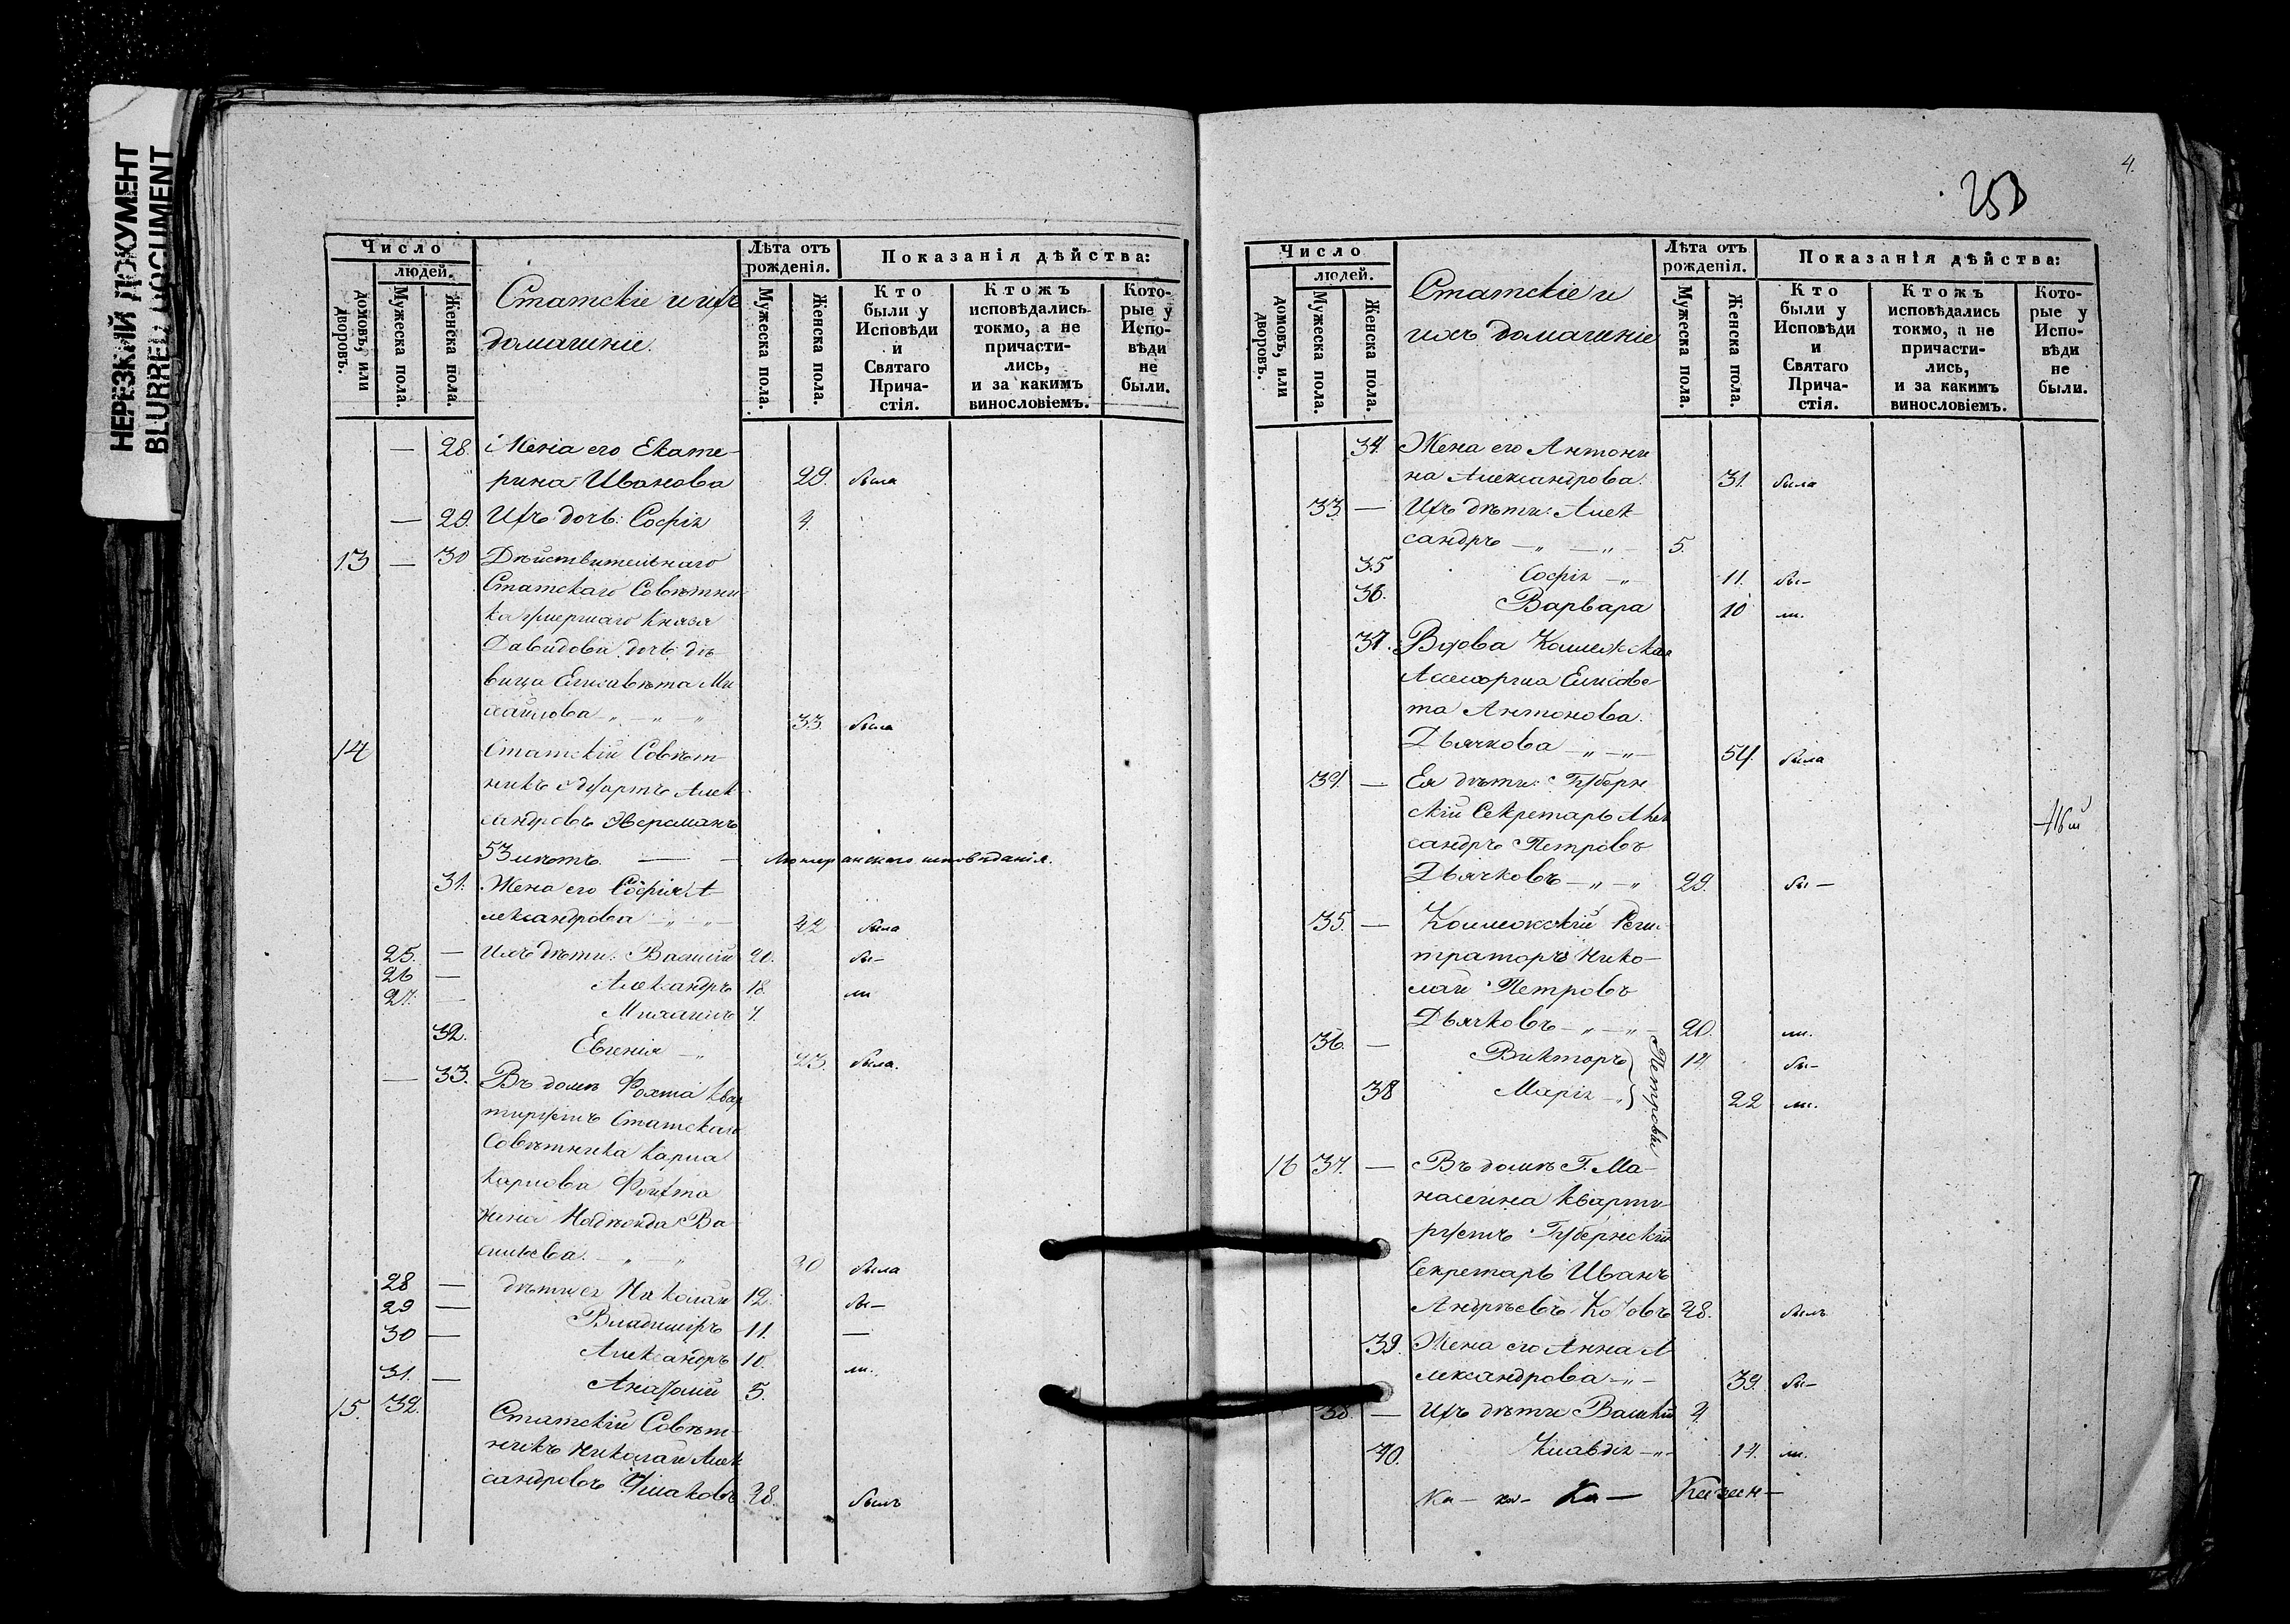 НЕРЕЗКИЙ ДОКУМЕНТ
BLURRED DOCUMENT
Число
людей.
домовъ, или дворовъ.
Мужеска пола.
Женска пола.
Статскіе и ихъ
домашніе.
Лѣта отъ рожденія.
Мужеска пола.
Женска пола.
Показанія дѣйства:
Кто были у Исповѣди и Святаго Причастія.
Ктожъ исповѣдались токмо, а не причастились, и за какимъ винословіемъ.
Которые у Исповѣди не были.
— 28. Жена его Екате-
рина Иванова 29. была
— 29. Ихъ дочь: Софія 4.
13 — 30 Дѣйствительнаго
Статскаго Совѣтни-
ка умершаго Князя
Давидова дочь дѣ-
вица Елисавѣта Ми
хайлова „ — „ — „ 33. была
14 Статскій Совѣт-
никъ Эдуартъ Алек
сандровъ Эверсманъ
53 лѣтъ. — — Лютеранскаго исповѣданія.
31. Жена его Софія А-
лександрова „ — „ — 42 была
25. — Ихъ дѣти: Василій 20. бы-
26 — Александръ 18. ли
27. — Михаилъ 7.
32. Евгенія — „ 23. была.
— 33. Въ домѣ Фохта квар
тируетъ Статскаго
Совѣтника Карла
Карлова Фохта
жена Надежда Ва
сильева. — „ — „ 30 была
28 — дѣти ея Николай 12. бы—
29 — Владиміръ 11. —
30 — Александръ 10. ли.
31. — Анатолій 5.
15. 32. Статскій Совѣт-
никъ Николай Алек
сандровъ Ушаковъ 38. былъ
4.
253
Число
людей.
домовъ, или дворовъ.
Мужеска пола.
Женска пола.
Статскіе и
ихъ домашніе
Лѣта отъ рожденія.
Мужеска пола.
Женска пола.
Показанія дѣйства:
Кто были у Исповѣди и Святаго Причастія.
Ктожъ исповѣдались токмо, а не причастились, и за какимъ винословіемъ.
Которые у Исповѣди не были.
34. Жена его Антони
на Александрова. 31. была
33. — Ихъ дѣти: Алек-
сандръ — „ — „ — 5.
35 Софія — „ 11. бы—
36. Варвара 10 ли.
37. Вдова Коллежская
Ассесорша Елисаве-
та Антонова.
Дьячкова — „ — „ — 54. была
34. — Ея дѣти: Губерн
скій Секретарь Алек
сандръ Петровъ
Дьячковъ — „ — „ 29. бы —
35. — Коллежскій Реги-
траторъ Нико-
лай Петровъ
Дьячковъ — „ — „ — 20. ли.
36. — Викторъ 14 бы—
38 Марія — „ 22 ли.
Петровы
16 37. — Въ домѣ Г. Ма-
насеина кварти-
руетъ Губернскій
Секретарь Иванъ
Андреевъ Котовъ 38. былъ
39. Жена его Анна А
лександрова — „ — 39. бы—
38. — Ихъ дѣти Василій 4
40. Клавдія — „ — 14. ли.